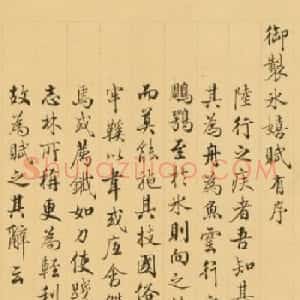 御製氷嬉賦有序
陸行之疾者吾知其
其為舟為魚雲行
鵬鶚至行氷則向之
而莫能施其技國俗
牢鞵以韋或底含
馬或薦鐵如刀使踐
志林所稱更為輕利
故為賦之其辭云
Shufaziliao.com